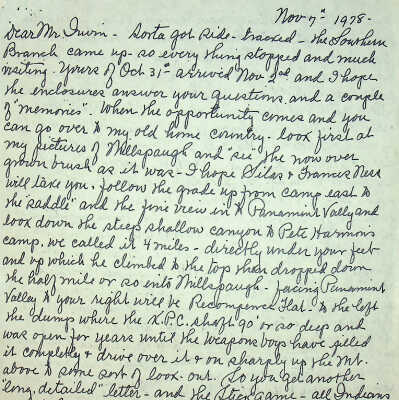 Nov 7th 1978-
Dear Mr. Irwin - Sorta got side-tracked - the Southern
Branch came up - so every thing stopped and much
visiting. Yours of Oct 31st arrived Nov 2nd and I hope
the enclosures answer your questions and a couple
of "memories". When the opportunity comes and you
can go over to my old home country - look first at
my pictures of Millspaugh and "see" the now over
grown brush as it was - I hope Silas & Francis Ness
will take you. follow the grade up from camp east to
"the saddle" and the fine view into Panamint Vally and
look down the steep shallow canyon to Pete Harmon's
camp, we called it 4 miles - directly under your feet
and up which he climbed to the top then dropped down
the half mile or so onto Millspaugh - facing Panamint
Valley to your right will be Recompence Flat - to the left
the "dumps where the X.P.C. shaft go" or so deep and
was open for years until the Weapons boys have filled
it completely & drive over it & on sharply up the Mt.
above to some sort of look-out. So you get another
"long, detailed" letter - and the Stick game - all Indians